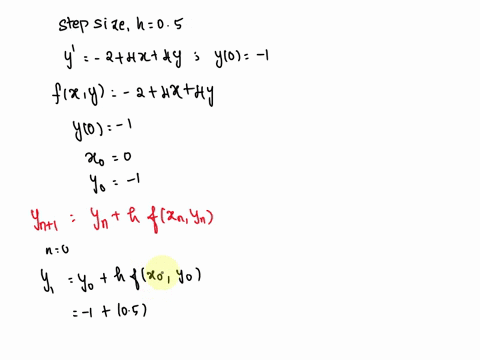 step size, h=0.5
y' = -2+4x+4y ; y(0) = -1
f(x,y) = -2+4x+4y
y(0) = -1
x₀ = 0
y₀ = -1
yₙ₊₁ = yₙ + h f(xₙ, yₙ)
n=0
y₁ = y₀ + h f(x₀, y₀)
= -1 + (0.5)